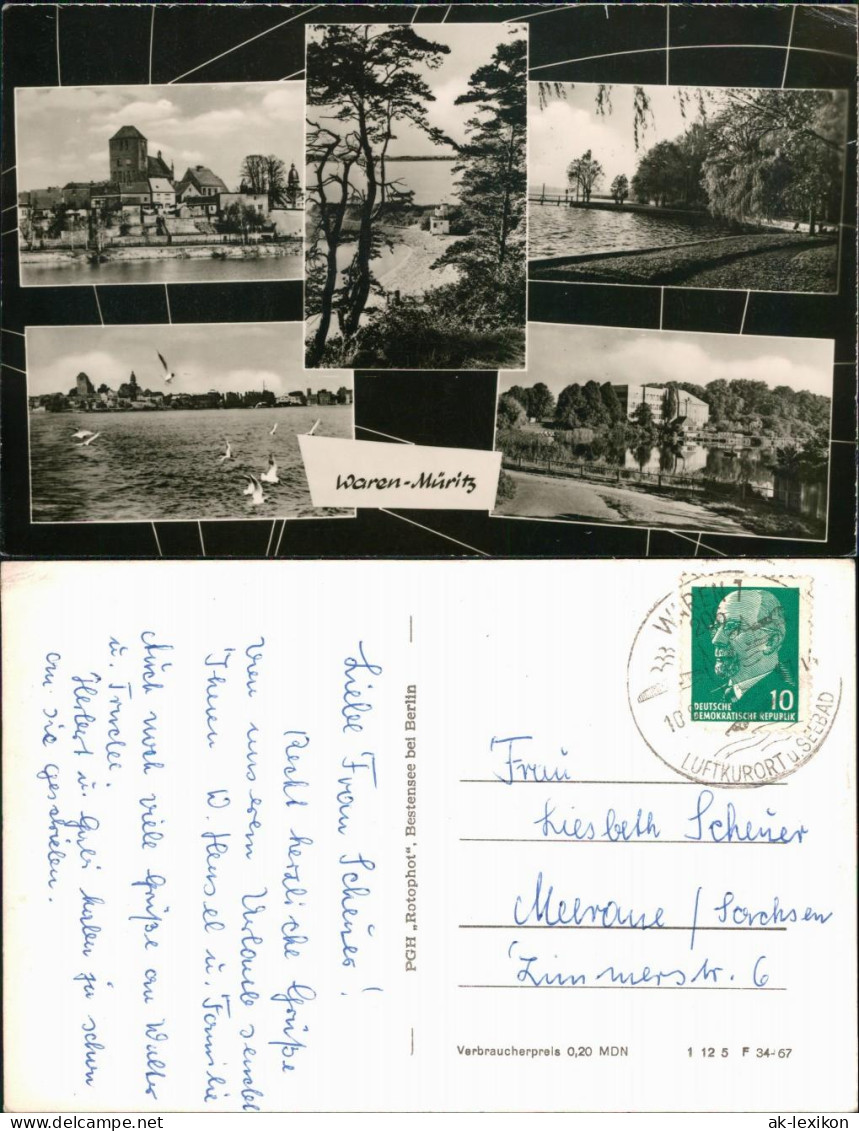 Waren-Müritz
WAREN 1
LUFTKURORT u. SEEBAD
10
DEUTSCHE
DEMOKRATISCHE REPUBLIK
Liebe Frau Scheuer!
Recht herzliche Grüße
von unserem Urlaub sendet
Ihnen W. Hensel u. Familie
Auch noch viele Grüße an Walter
u. Trudel
Herbert u. haben ja schon
an Sie geschrieben.
PGH „Rotophot", Bestensee bei Berlin
Frau
Liesbeth Scheuer
Meerane / Sachsen
Zimmerstr. 6
Verbraucherpreis 0,20 MDN 1 12 5 F 34-67
ak-lexikon